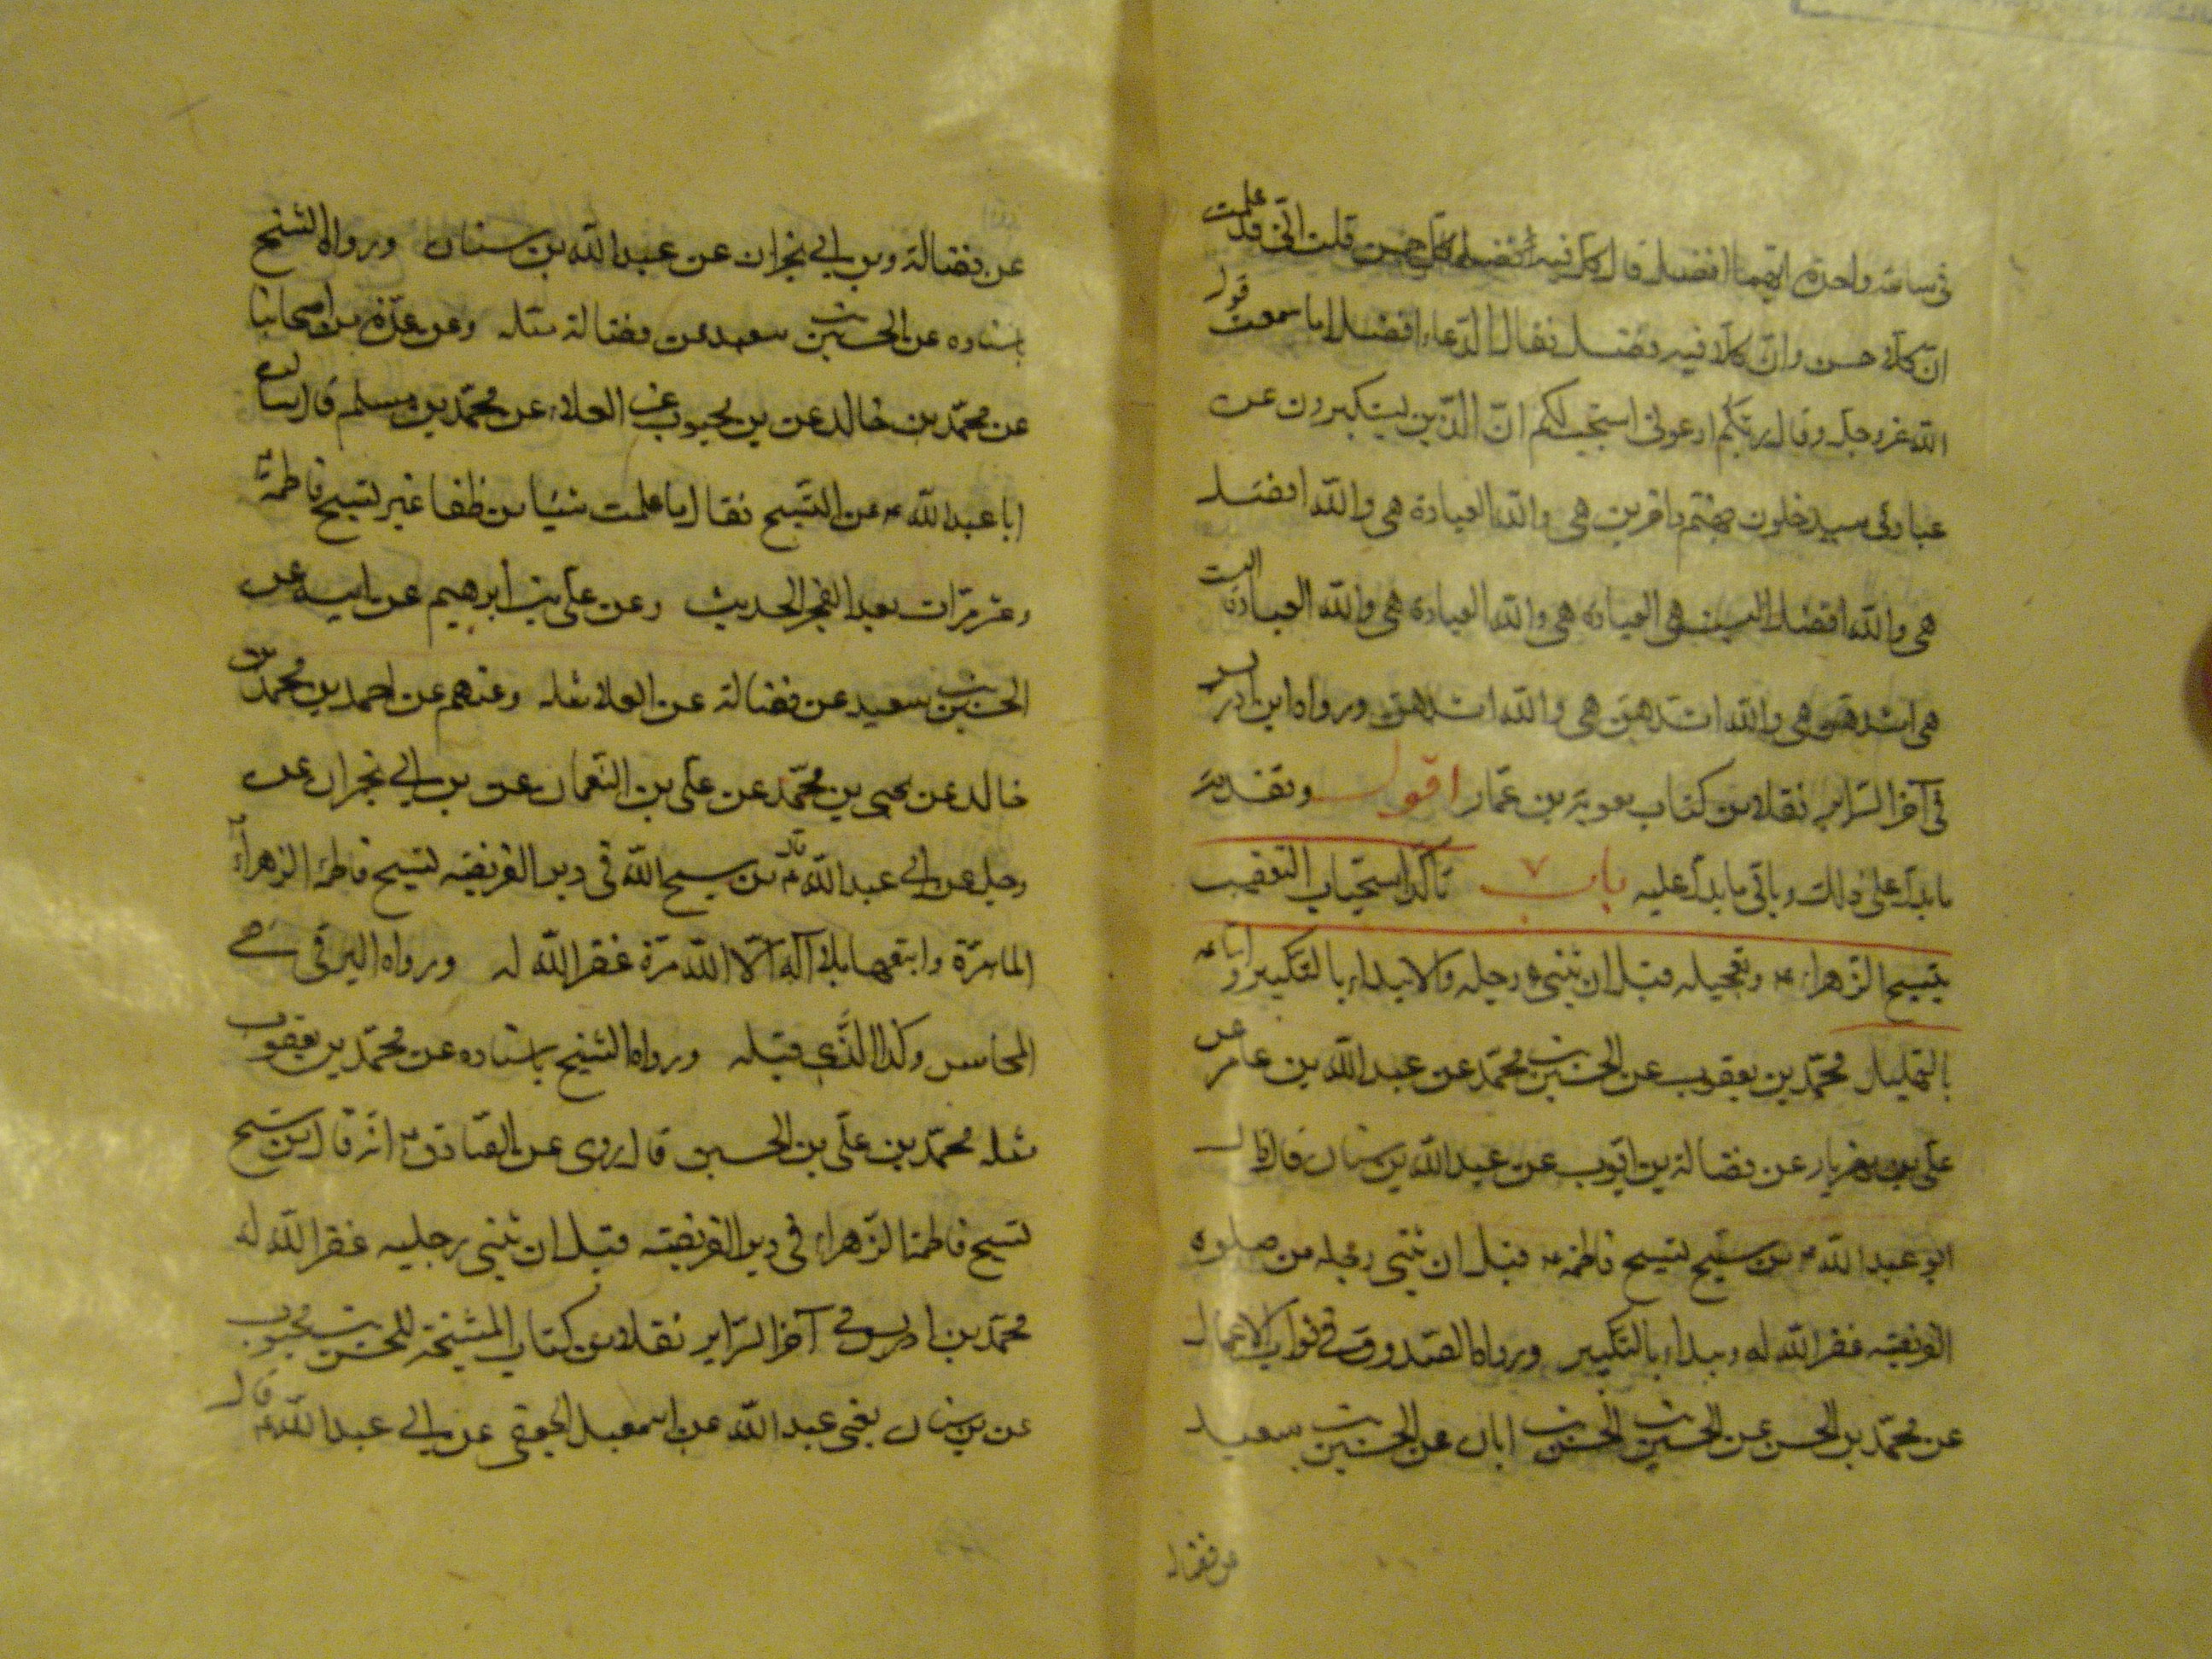 في ساعة واحدة ايهما افضل قال كل فيه فضل كل حسن قلت انى قد علمت
ان كلا حسن وان كلا فيه فضل فقال الدعاء افضل اما سمعت قول
الله عز وجل وقال ربكم ادعونى استجب لكم ان الذين يستكبرون عن
عبادتى سيدخلون جهنم داخرين هى والله العبادة هى والله افضل
هى والله افضل اليست هى العبادة هى والله العبادة هى والله العبادة اليست
هى اشدهن هى والله اشدهن هى والله اشدهن ورواه ابن ادريس
في آخر السراير نقلا من كتاب معوية بن عمار اقول وتقدم
ما يدل على ذلك وياتى ما يدل عليه باب ٧ تاكد استحباب التعقيب
بتسبيح الزهراء ع وتعجيله قبل ان يثنى رجله والابتداء بالتكبير واتباعه
بالتهليل محمد بن يعقوب عن الحسين بن محمد عن عبد الله بن عامر عن
على بن مهزيار عن فضالة بن ايوب عن عبد الله بن سنان قال قال
ابو عبد الله ع من سبح تسبيح فاطمة ع قبل ان يثنى رجله من صلوة
الفريضة غفر الله له ويبداء بالتكبير ورواه الصدوق في ثواب الاعمال
عن محمد بن الحسن عن الحسين بن الحسن بن ابان عن الحسين بن سعيد
عن فضالة
عن فضالة وبن ابي نجران عن عبد الله بن سنان ورواه الشيخ
باسناده عن الحسين بن سعيد عن فضالة مثله وعن عدة من اصحابنا
عن محمد بن خالد عن بن محبوب عن العلاء عن محمد بن مسلم قال سالت
ابا عبد الله ع عن التسبيح فقال ما علمت شيئا من ظفا غير تسبيح فاطمة
وعشر مرات بعد الفجر الحديث وعن على بن ابرهيم عن ابيه عن
الحسين بن سعيد عن فضالة عن العلا مثله وعنهم عن احمد بن محمد بن
خالد عن يحيى بن محمد عن على بن النعمان عن بن ابي نجران عن
رجل عن ابي عبد الله ع قال من سبح الله في دبر الفريضه تسبيح فاطمة الزهراء
المائة مرة واتبعها بلا اله الا الله مرة غفر الله له ورواه البرقى في
المحاسن وكذا الذى قبله ورواه الشيخ باسناده عن محمد بن يعقوب
مثله محمد بن على بن الحسين قال روى عن الصادق ع انه قال من سبح
تسبيح فاطمة الزهراء في دبر الفريضة قبل ان يثنى رجليه غفر الله له
محمد بن ادريس في آخر السراير نقلا من كتاب المشيخة للحسن بن محبوب
عن بن سنان يعنى عبد الله عن اسمعيل الجعفى عن ابي عبد الله ع قال